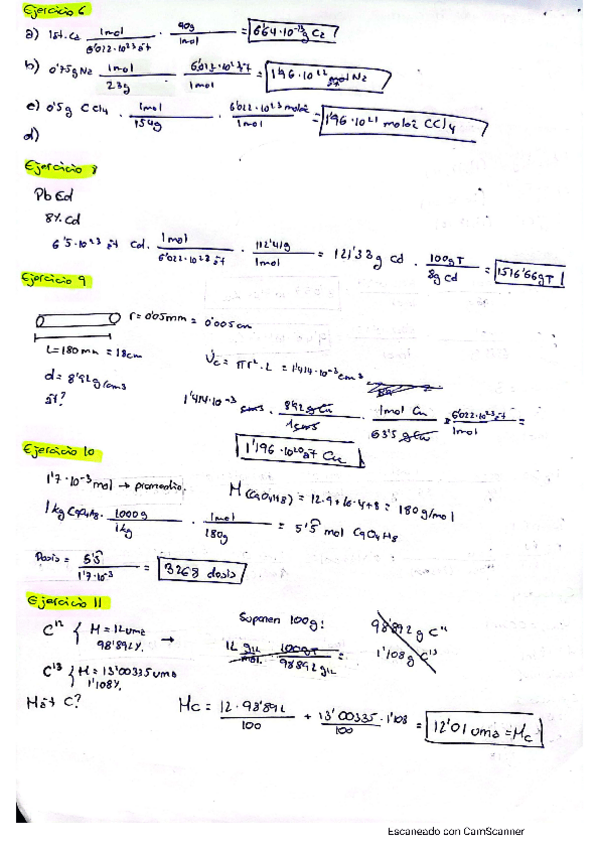 Ejercicio 6
a) 1at. Ca · 1mol / 6'022·10²³ at · 40g / 1mol = 6'64·10⁻²³ g Ca
b) 0'75g N₂ 1mol / 28g · 6'022·10²³ / 1mol = 1'96·10²² N₂
c) 0'5g CCl₄ · 1mol / 154g · 6'022·10²³ moléc / 1mol = 1'96·10²¹ moléc CCl₄
d)
Ejercicio 8
Pb Cd
8% Cd
6'5·10²³ at Cd · 1mol / 6'022·10²³ at · 112'41g / 1mol = 121'33g Cd · 100g T / 8g Cd = 1516'66g T
Ejercicio 9
r = 0'05mm = 0'005cm
L = 180mm = 18cm
Vc = πr²·L = 1'414·10⁻³ cm³
d = 8'92g/cm³
at?
1'414·10⁻³ cm³ · 8'92 g Cu / 1cm³ · 1mol Cu / 63'5 g Cu · 6'022·10²³ at / 1mol =
1'196·10²⁰ at Cu
Ejercicio 10
1'7·10⁻³ mol → promedio.
M (C₉O₄H₈) = 12·9+16·4+8 = 180g/mol
1 kg C₉O₄H₈ · 1000g / 1kg · 1mol / 180g = 5'5̂ mol C₉O₄H₈
Dosis = 5'5̂ / 1'7·10⁻³ = 3268 dosis
Ejercicio 11
C¹² { M = 12 uma
98'892%
→
Suponen 100g:
12 g12 / mol · 100g T / 98'892 g12 =
98'892 g C¹²
1'108 g C¹³
C¹³ { M = 13'00335 uma
1'108%
M at C?
Mc = 12·98'892 / 100 + 13'00335·1'108 / 100 = 12'01 uma = Mc
Escaneado con CamScanner